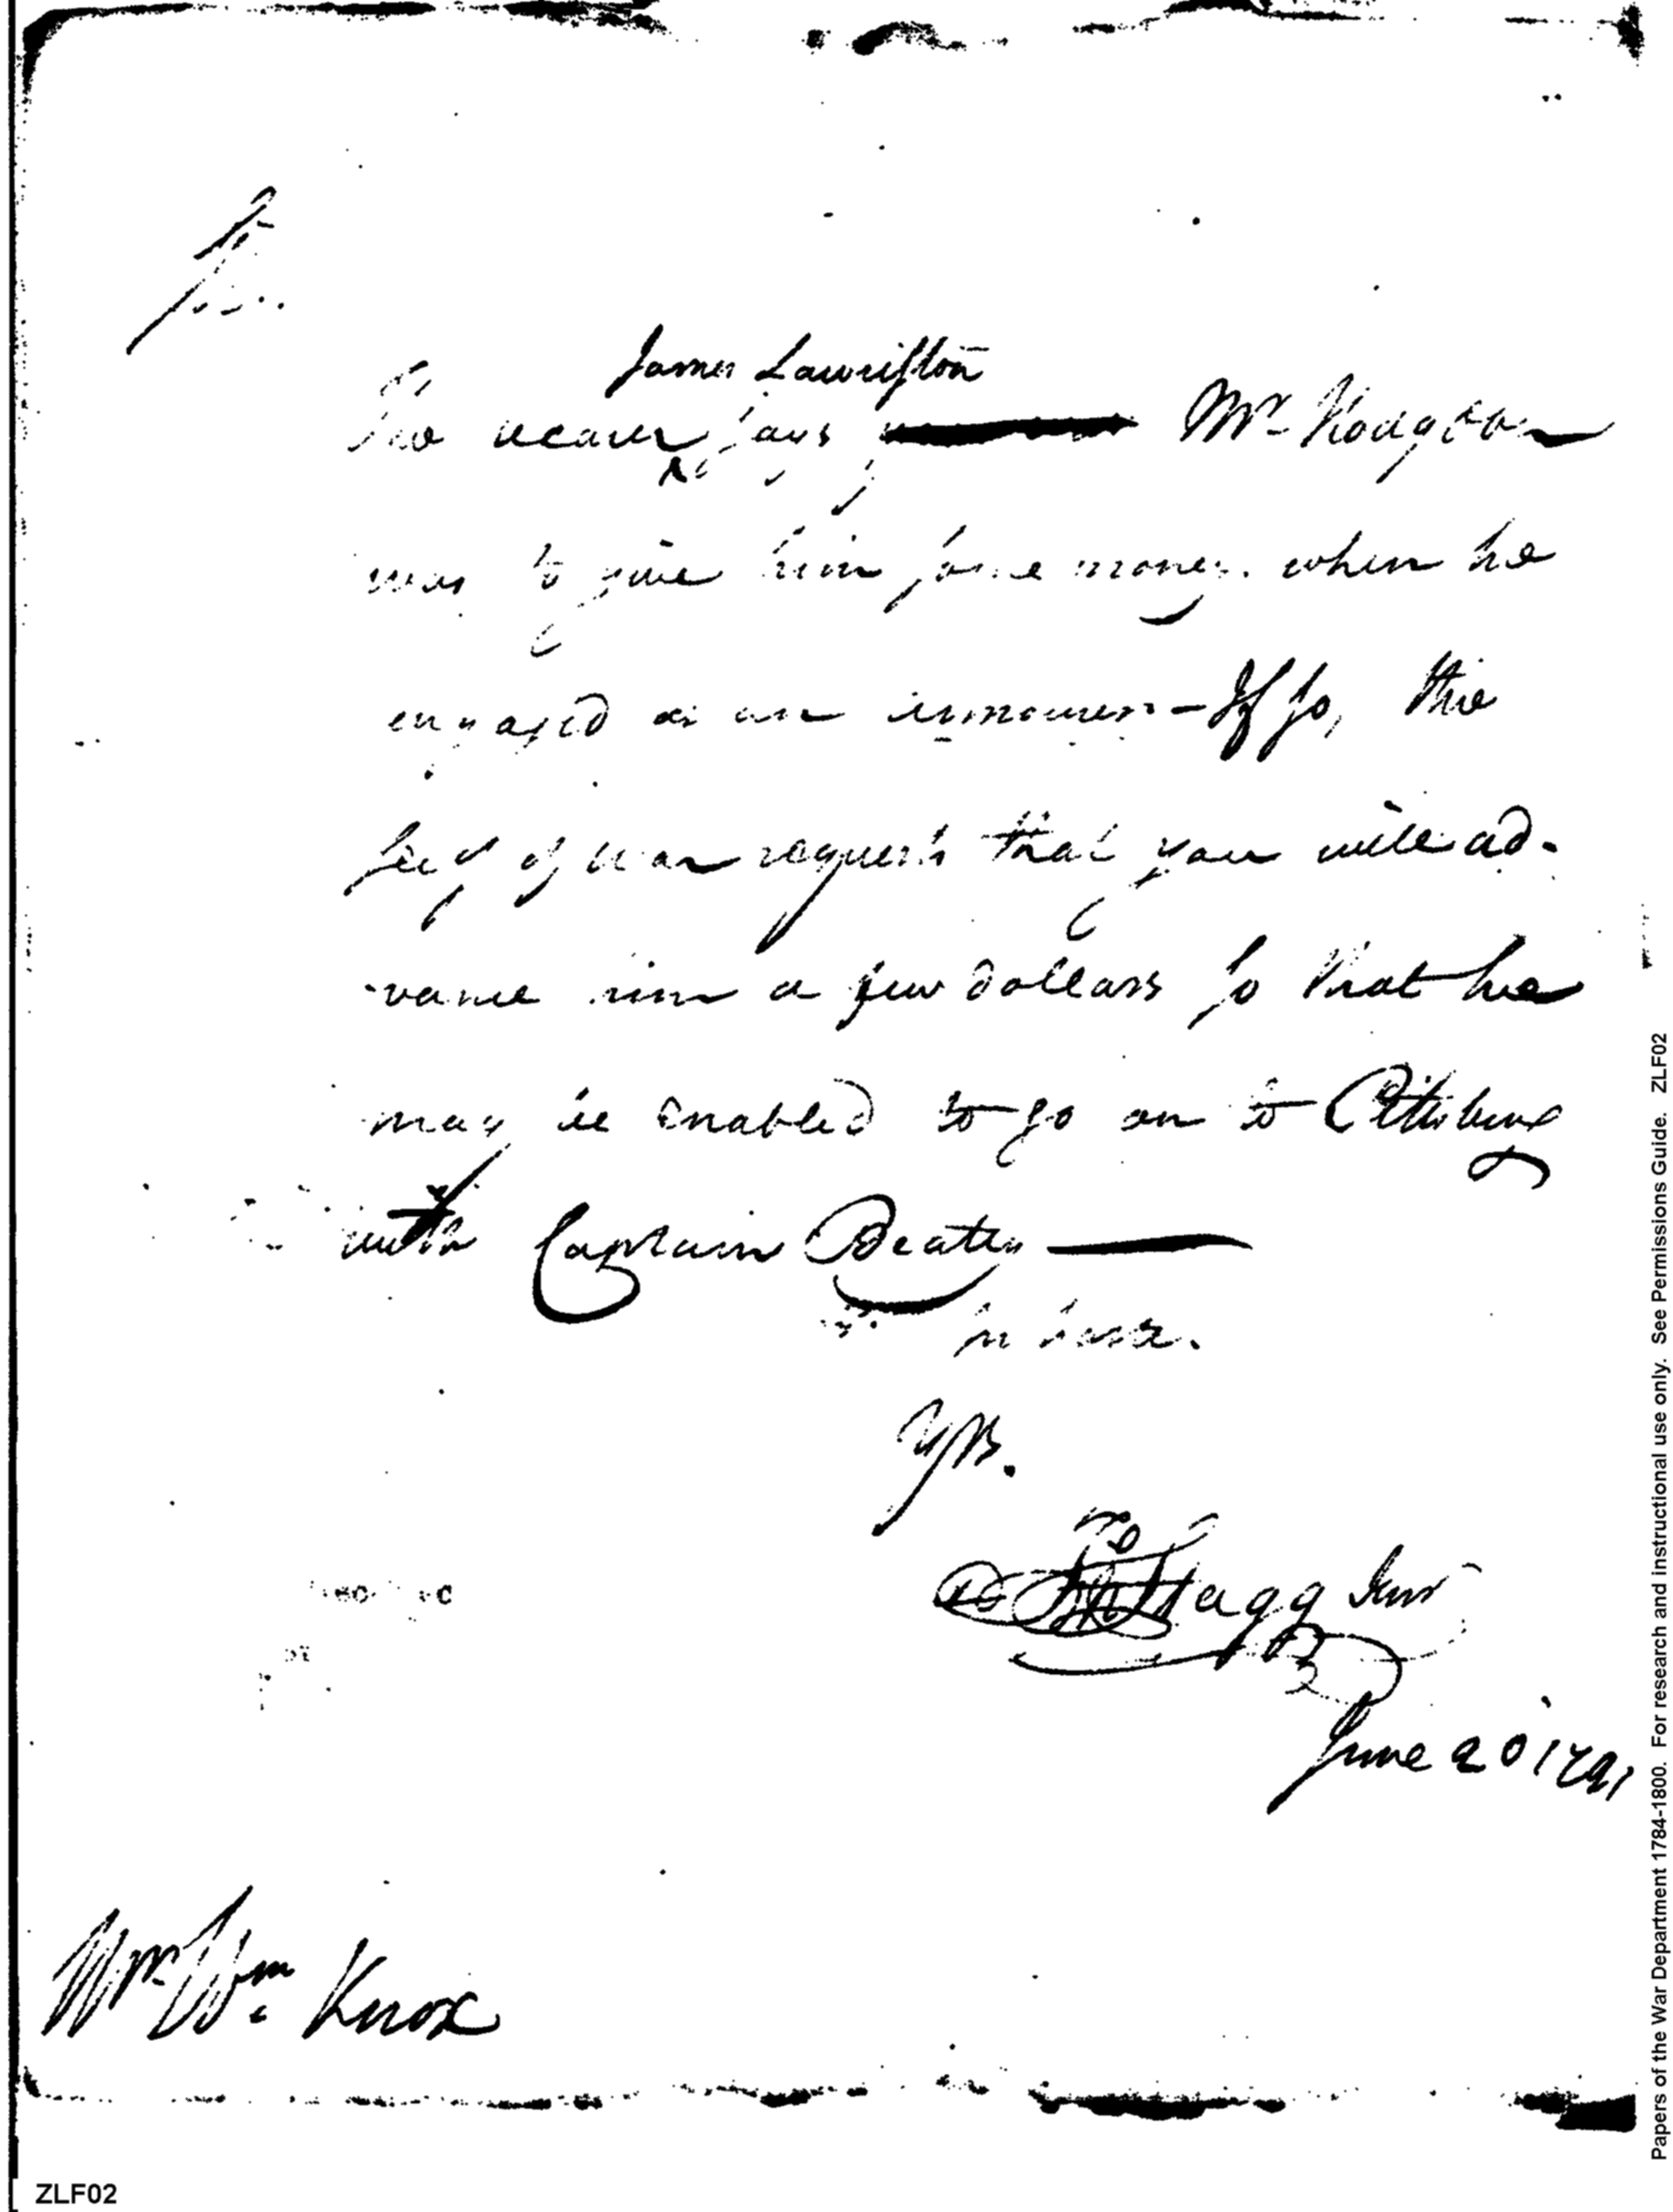 Sir
James Lawriston
The bearer says Mr Hodgson
was to give him some money when he
engaged as an armourer - If so, the
Secy of War requests that you will ad-
vance him a few dollars so that he
may be enabled to go on to Pittsburg
with Captain Beatty
in haste.
Yrs.
Jno Stagg Junr
June 20 1791
Mr Wm Knox
ZLF02
Papers of the War Department 1784-1800. For research and instructional use only. See Permissions Guide. ZLF02